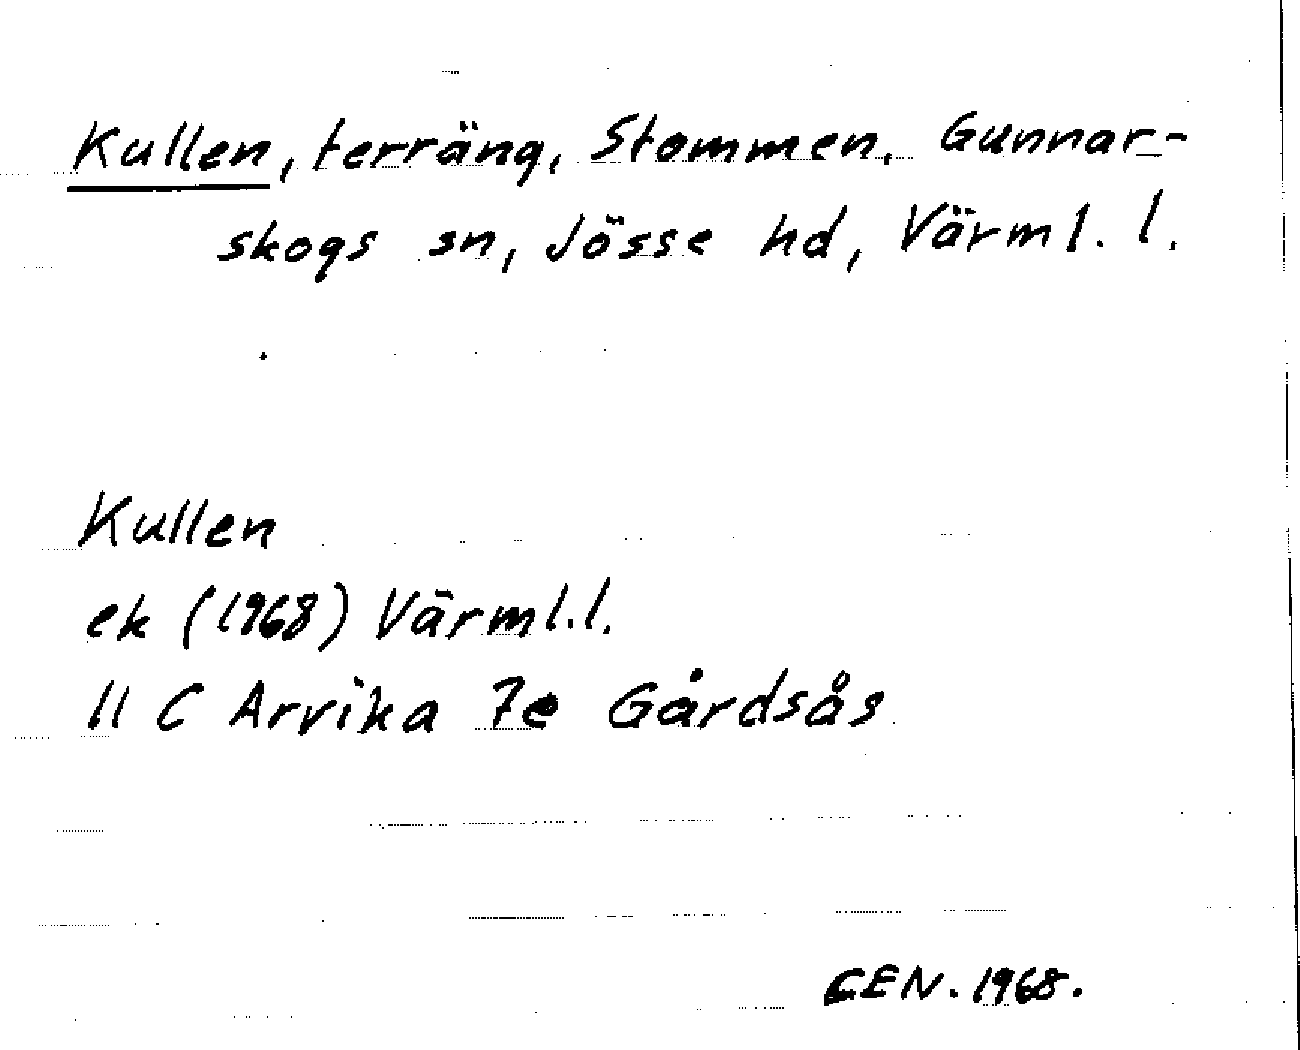 Kullen, terräng, Stommen, Gunnar-
skogs sn, Jösse hd, Värml. l.
Kullen
ek (1968) Värml.l.
11 C Arvika 7e Gårdsås
CEN. 1968.